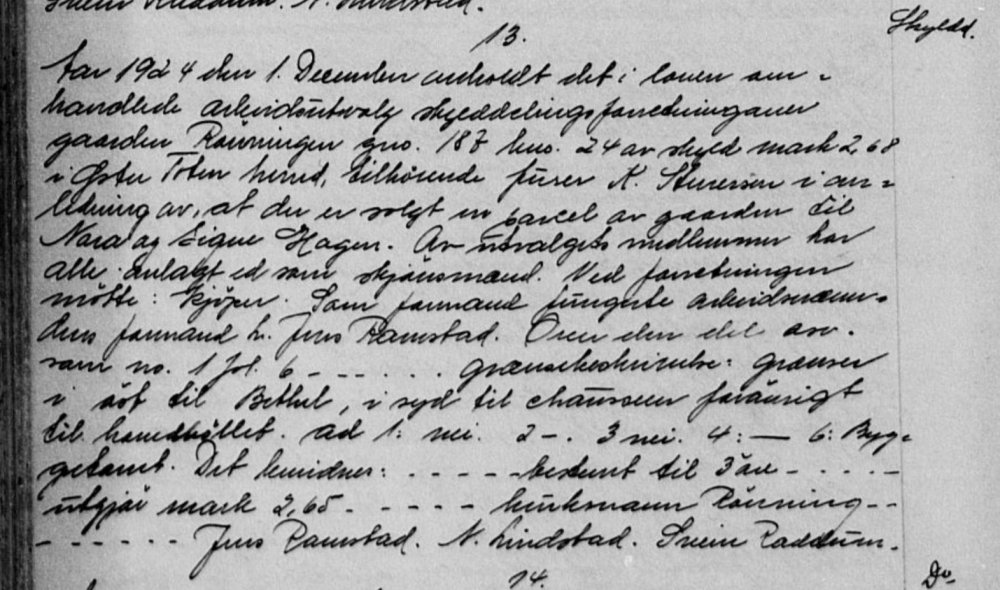 Svein Raddum. N. Lindstad.
Skyldd.
13.
Aar 1924 den 1. December avholdt det i loven om-
handlede arbeidsutvalg skylddelingsforretning over
gaarden Rönningen gno. 187 bno. 24 av skyld mark 2,68
i Öster Toten herred, tilhörende furer K. Steneren i an-
ledning av, at der er solgt en parcel av gaarden til
Nora og Signe Hagen. Av utvalgets medlemmer har
alle avlagt ed som skjönsmænd. Ved forretningen
mötte: Kjöper. Som formand fungerte arbeidsnævn-
dens formand h. Jens Ramstad. Over den del osv.
som no. 1 fol. 6 - - - - - . Grænsebeskrivelse: Grænser
i öst til Bethel, i syd til chausseen forövrigt
til hovedböllet. ad 1: nei. 2 -. 3 nei. 4: — 6: Byg-
getomt. Det bevidnes: - - - - - bestemt til 3 öre - - - -
utgjör mark 2,65 - - - - - bruksnavn Rönning - -
- - - - - - Jens Ramstad. N. Lindstad. Svein Raddum.
14.
Do.